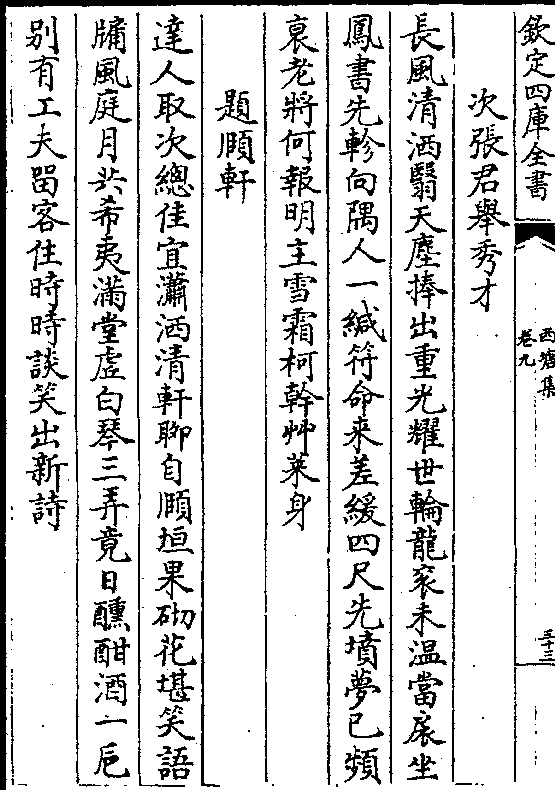 欽定四庫全書
西塘集
卷九
三十三
次張君舉秀才
長風清洒翳天塵捧出重光耀世輪龍衮未温當扆坐
鳳書先軫向隅人一緘符命来差緩四尺先墳夢已頻
衰老將何報明主雪霜柯幹艸萊身
題頤軒
達人取次總佳宜瀟洒清軒聊自頤垣果砌花堪笑語
牖風庭月共希夷滿堂虚白琴三弄竟日醺酣酒一巵
别有工夫留客住時時談笑出新詩